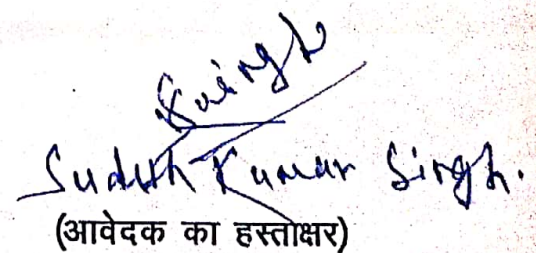 Ssingh
Sudesh Kumar Singh.
(आवेदक का हस्ताक्षर)